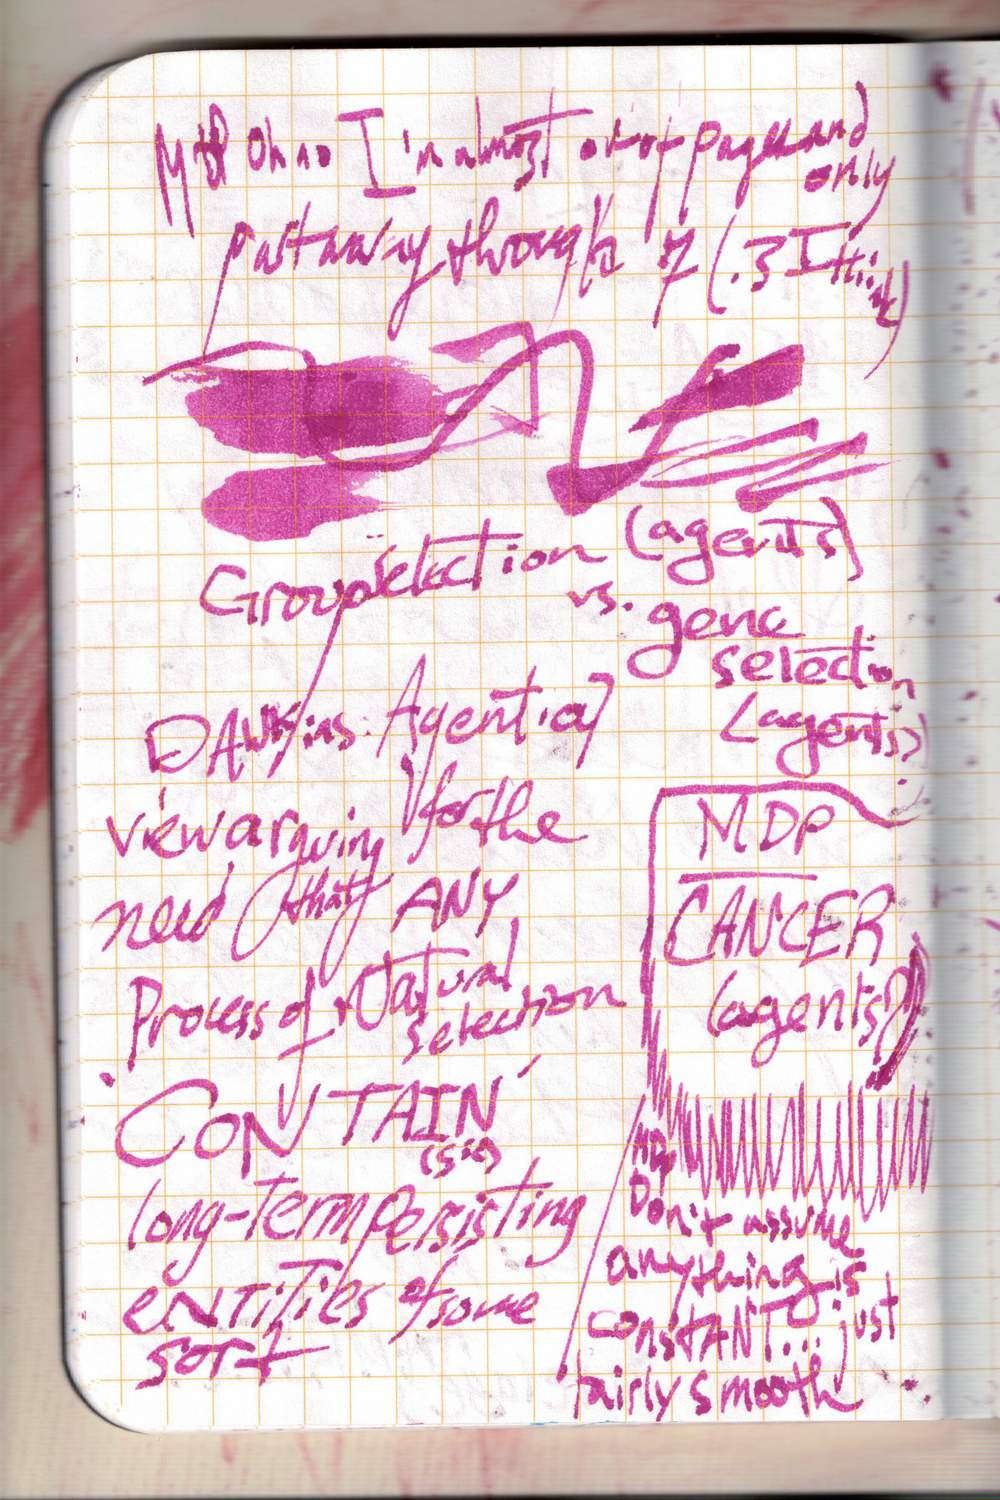 Oh no I'm almost out of pages and
only
partway through 7 (.3 I think)
Group selection (agents)
vs. gene
selection
(agents)
DAWKins. Agential
view arguing for the
need (that) ANY
Process of Natural
selection
'CONTAIN'
(sic)
long-term persisting
entities of some
sort
MDP
CANCER
(agents?)
Don't assume
anything is
consTANT... just
fairly smooth